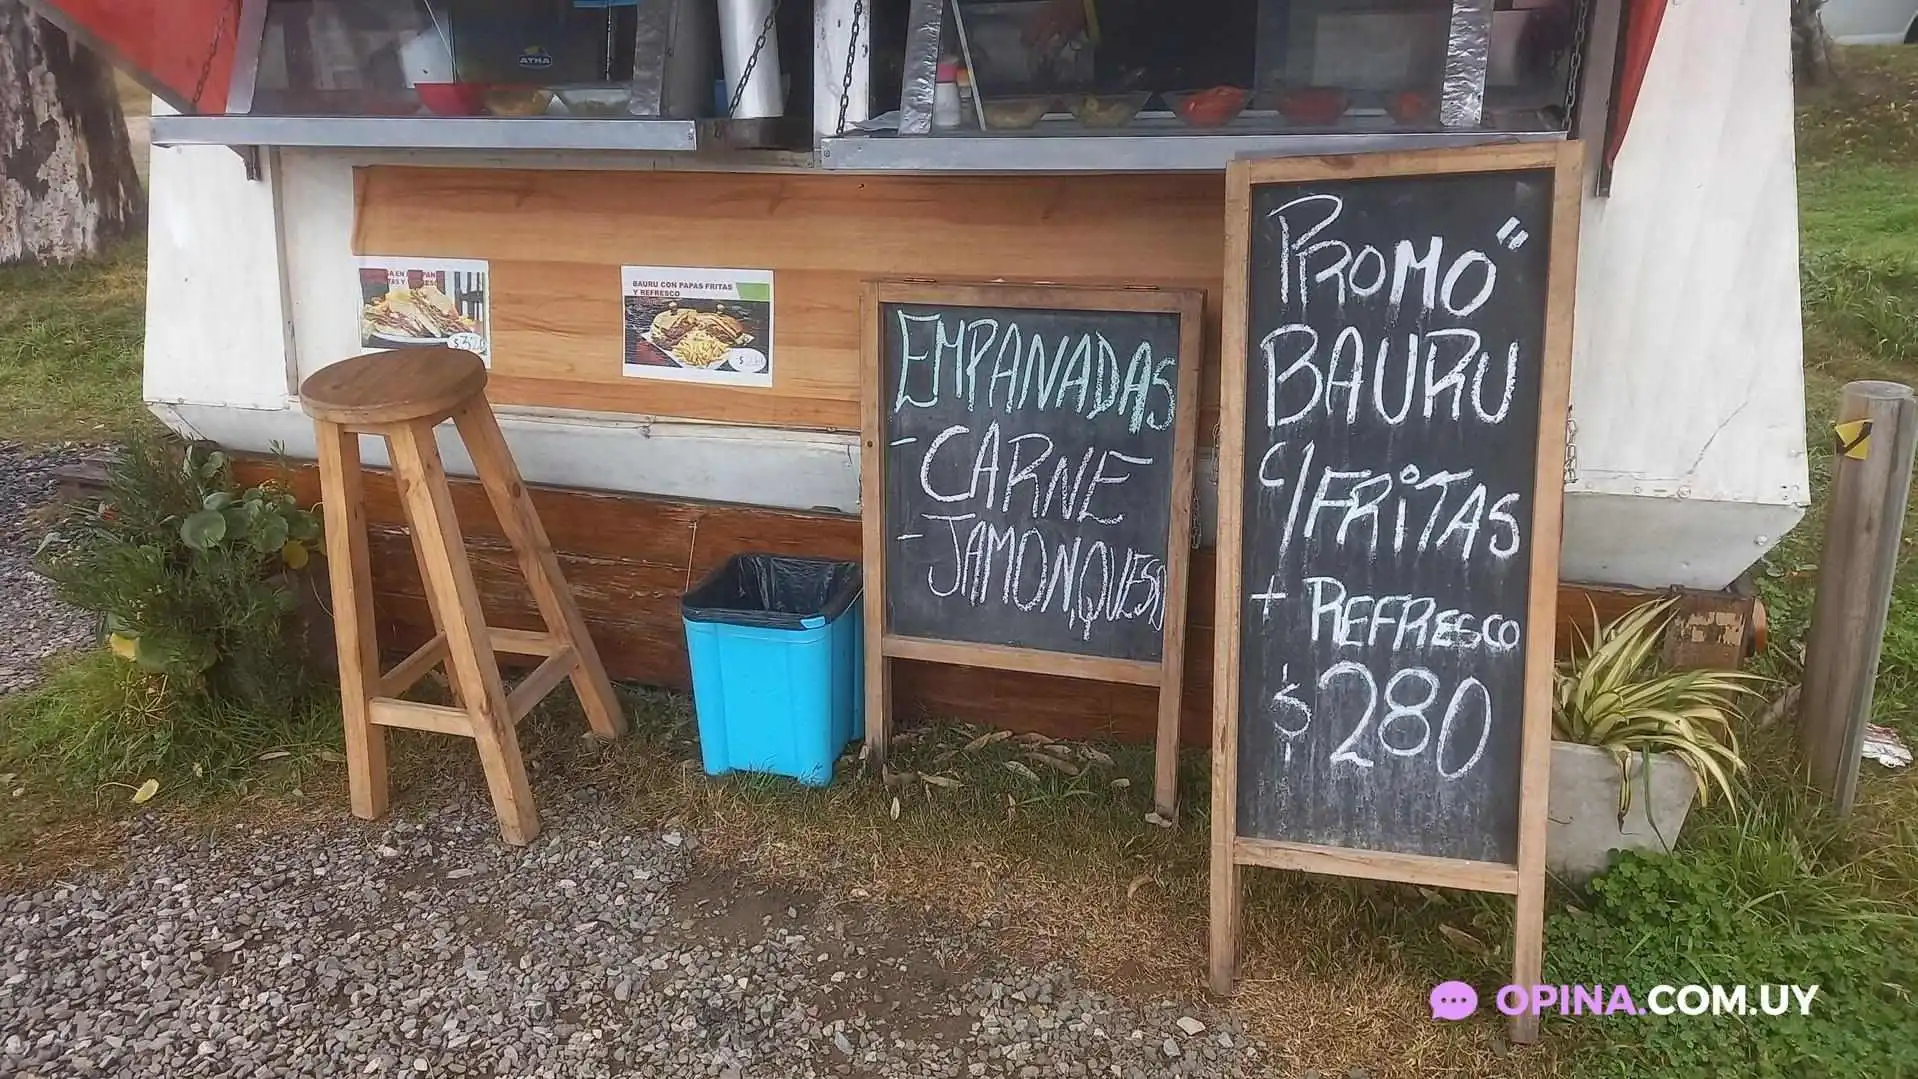 ATMA
BAURU CON PAPAS FRITAS
Y REFRESCO
EMPANADAS
- CARNE
- JAMON,QUESO
PROMO"
BAURU
C/FRITAS
+ REFRESCO
$280
OPINA.COM.UY